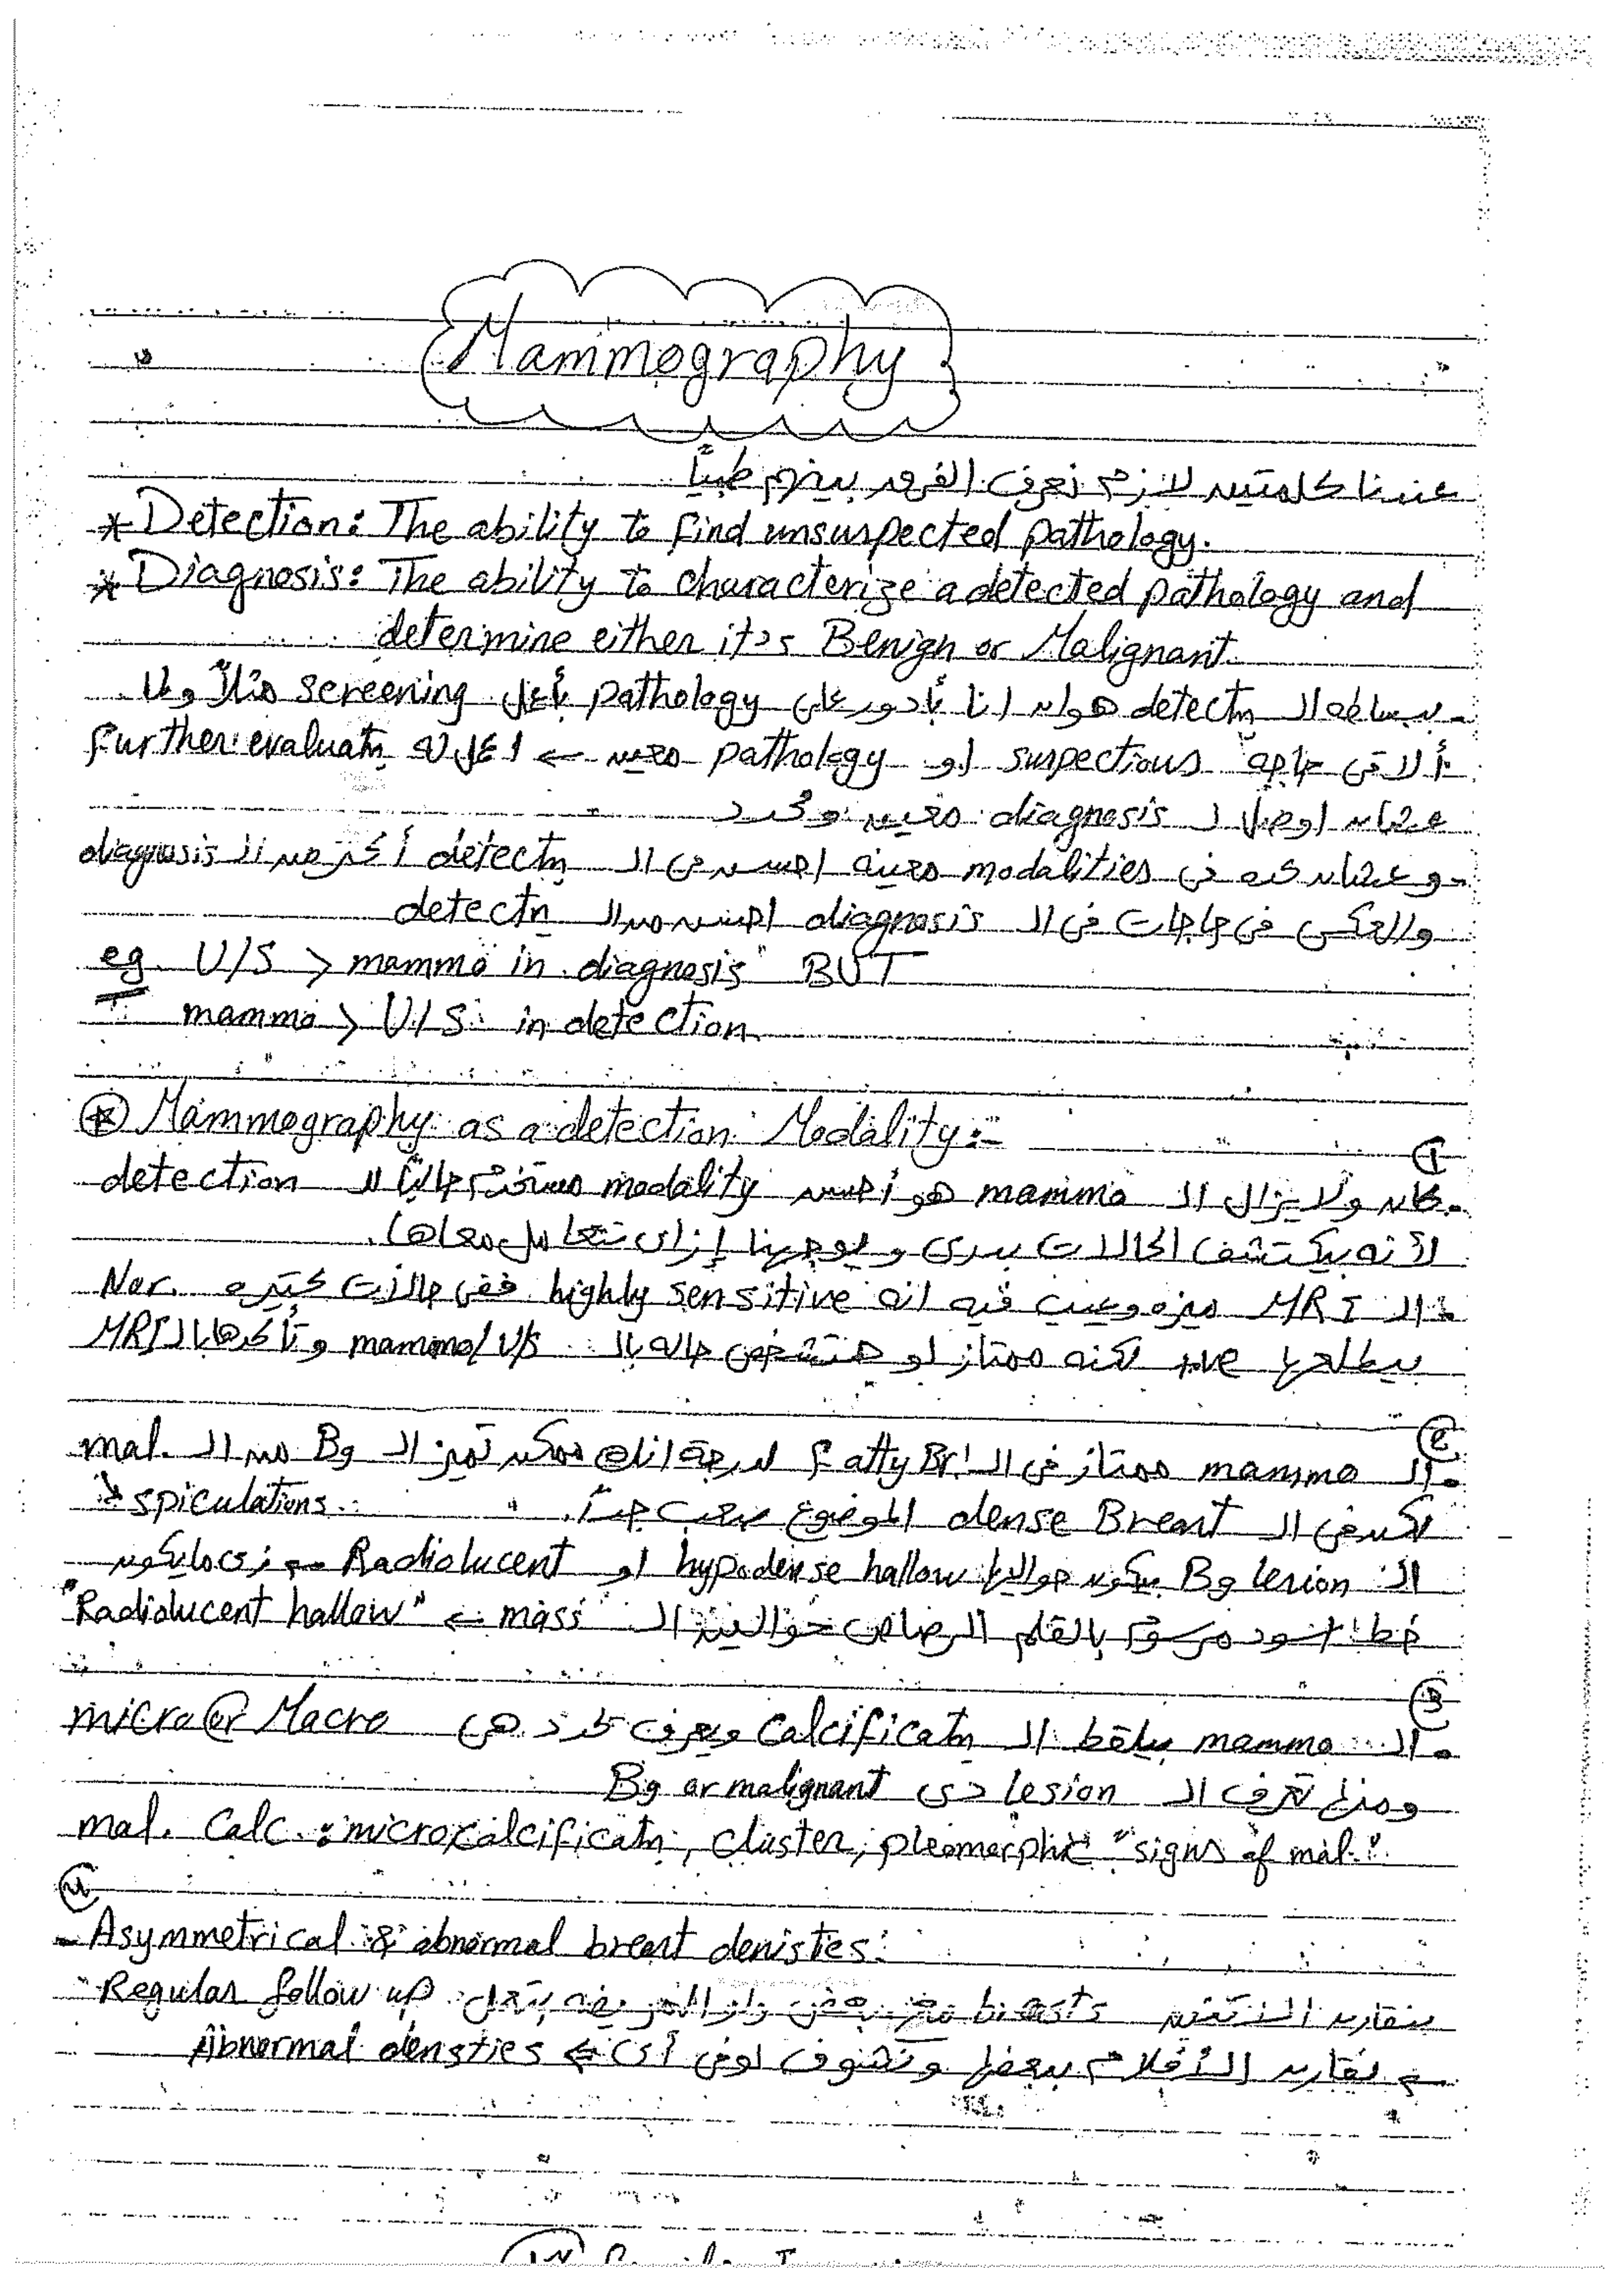 Mammography
عندنا كلمتين لازم نعرف الفرق بينهم طبياً
* Detection: The ability to find unsuspected pathology.
* Diagnosis: The ability to characterize a detected pathology and
determine either it's Benign or Malignant.
- ببساطه ال detectn هو ان انا بأدور على pathology بأعمل screening مثلاً ولما
ألاقى حاجه suspectious او pathology معين ← اعمل له further evaluatn
عشان اوصل ل diagnosis معين وأحدد
- و عشان كده فى modalities معينه احسن فى ال detectn أكتر من ال diagnosis
والعكس فى حاجات فى ال diagnosis احسن من ال detectn
eg. U/S > mammo in diagnosis BUT
mammo > U/S in detection
⊛ Mammography as a detection Modality:-
①
- كان ولا يزال ال mammo هو أحسن modality مستخدم حالياً لل detection
لأنه بيكتشف الحالات بدرى و يوجهنا إزاى نتعامل معاها.
- ال MRI ميزه وعيب فيه انه highly sensitive ففى حالات كتيره Nor.
بيطلعها +ve لكنه ممتاز لو هتشخص حاله بال mammo/U/S وتأكدها بال MRI
②
- ال mammo ممتاز فى ال Fatty Br. لدرجة انك ممكن تميز ال Bg من ال mal.
لكن فى ال dense Breast الموضوع صعب جداً. ↳ spiculations
ال Bg lesion بيكون حواليها hypodense hallow او Radiolucent زى مايكون
خط اسود مرسوم بالقلم الرصاص حوالين ال mass ← "Radiolucent hallow"
③
- ال mammo بيلقط ال calcificatn ويعرف يحدد هى micro or Macro
ومنها تعرف ال lesion دى Bg or malignant
mal. Calc.: microcalcificatn, cluster, pleomorphic "signs of mal."
④
- Asymmetrical & abnormal breast denisties:
بنقارن ال اتنين breasts مع بعض ولو المريضه بتعمل Regular follow up
نقارن الأفلام ببعضها ونشوف لو فى أى ← Abnormal densties